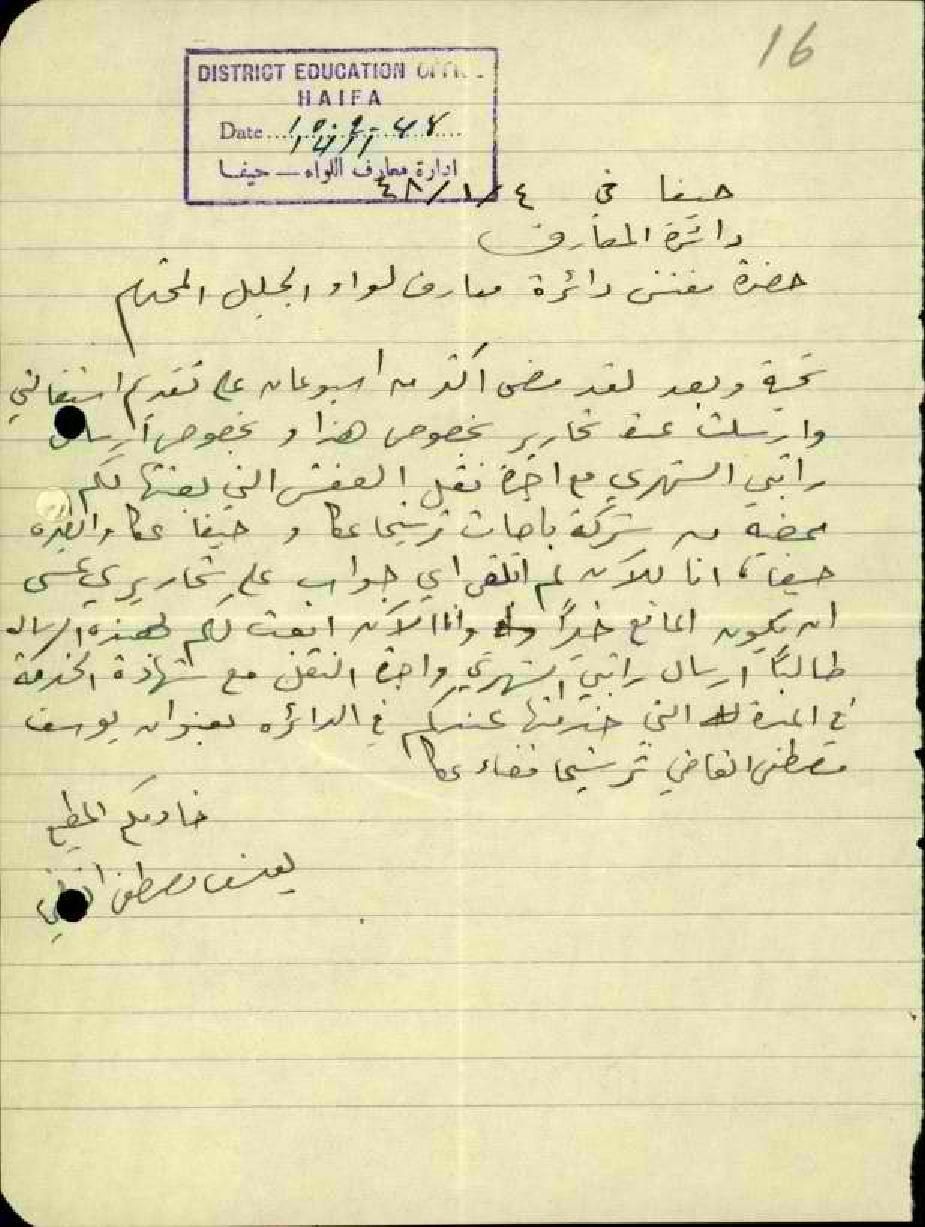 16
DISTRICT EDUCATION
HAIFA
Date
ادارة معارف اللواء — حيفا
حيفا في ٤/١/٤٨
دائرة المعارف
حضرة مفتش دائرة معارف لواء الجليل المحترم
تحية وبعد لقد مضى اكثر من اسبوعان على تقديم استقالتي
وارسلت عدة تحارير بخصوص هذا و بخصوص ارسال
راتبي الشهري مع اجرة نقل العفش التي بعثتها لكم
من شركة باصات ترشيحا عكا و حيفا عكا
حيفا، انا للآن لم اتلقى اي جواب على تحاريري عسى
ان يكون المانع خيراً وانا الآن ابعث لكم هذه الرساله
طالباً ارسال راتبي الشهري واجرة النقل مع شهادة الخدمة
في المدة التي خدمتها عندكم في الدائره بعنوان يوسف
مصطفى القاضي ترشيحا قضاء عكا
خادمكم المطيع
يوسف مصطفى القاضي